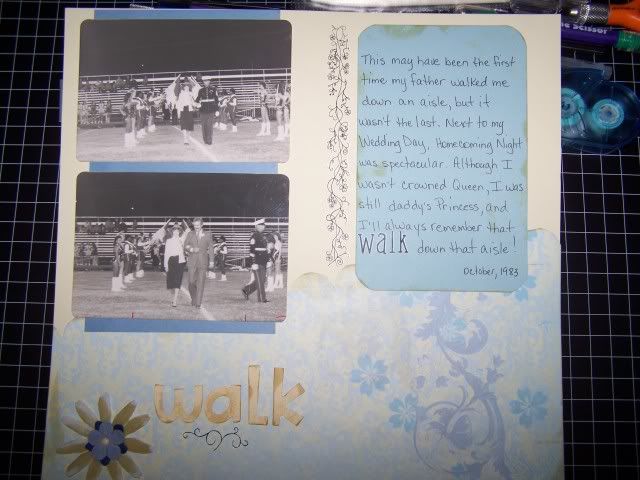 Scissor
This may have been the first
time my father walked me
down an aisle, but it
wasn't the last. Next to my
Wedding Day, Homecoming Night
was spectacular. Although I
wasn't crowned Queen, I was
still daddy's Princess, and
I'll always remember that
walk down that aisle!
October, 1983
walk